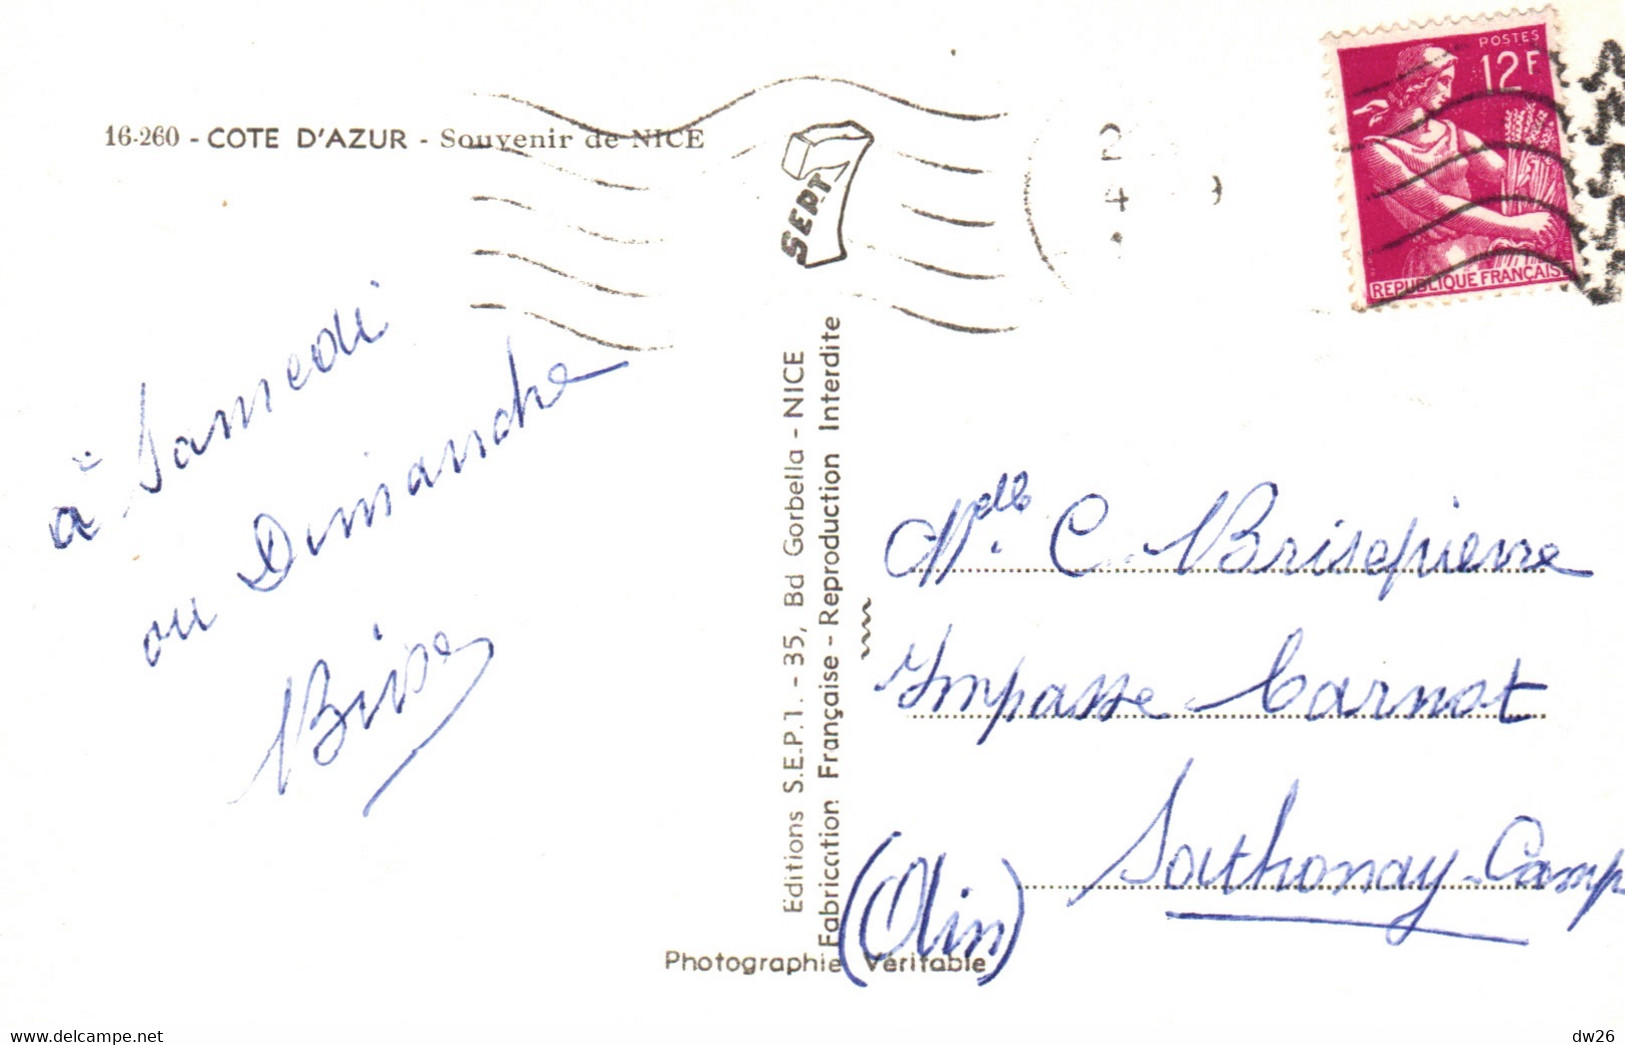 16-260 - COTE D'AZUR - Souvenir de NICE
SEPT
2
4 9
POSTES
12F
REPUBLIQUE FRANÇAISE
à Samedi
ou Dimanche
Brise
Editions S.E.P.T. - 35, Bd Gorbella - NICE
Fabrication Française - Reproduction Interdite
Mlle. C. Brisepierre
Impasse Carnot
Sathonay-Camp
(Ain)
Photographie Véritable
www.delcampe.net
dw26